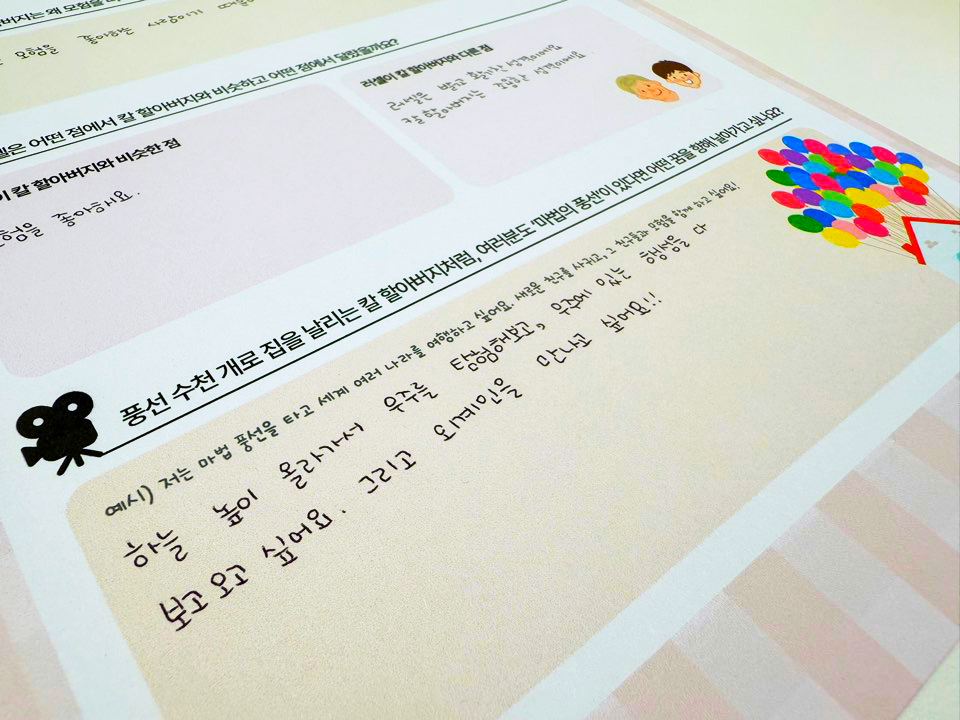 할아버지는 왜 모험을
모험을 좋아하는 사람이기 때문
은 어떤 점에서 칼 할아버지와 비슷하고 어떤 점에서 달랐을까요?
이 칼 할아버지와 비슷한 점
모험을 좋아해요.
러셀이 칼 할아버지와 다른 점
러셀은 밝고 활기찬 성격이에요
칼 할아버지는 조용한 성격이에요
풍선 수천 개로 집을 날리는 칼 할아버지처럼, 여러분도 마법의 풍선이 있다면 어떤 꿈을 향해 날아가고 싶나요?
예시) 저는 마법 풍선을 타고 세계 여러 나라를 여행하고 싶어요. 새로운 친구를 사귀고, 그 친구들과 모험을 함께 하고 싶어요!
하늘 높이 올라가서 우주를 탐험해보고, 우주에 있는 행성을 다
보고 오고 싶어요. 그리고 외계인을 만나고 싶어요!!